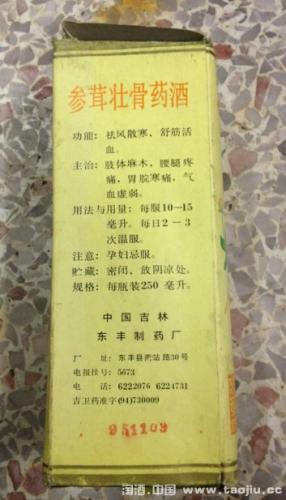 参茸壮骨药酒
功能：祛风散寒、舒筋活
血。
主治：肢体麻木，腰腿疼
痛，胃脘寒痛，气
血虚弱。
用法与用量：每服10—15
毫升。每日2—3
次温服。
注意：孕妇忌服。
贮藏：密闭、放阴凉处。
规格：每瓶装250毫升。
中国吉林
东丰制药厂
厂 址：东丰县南站路30号
电报挂号：5673
电 话：6222076 6224731
吉卫药准字(94)730009
951109
淘酒.中国 www.taojiu.cc